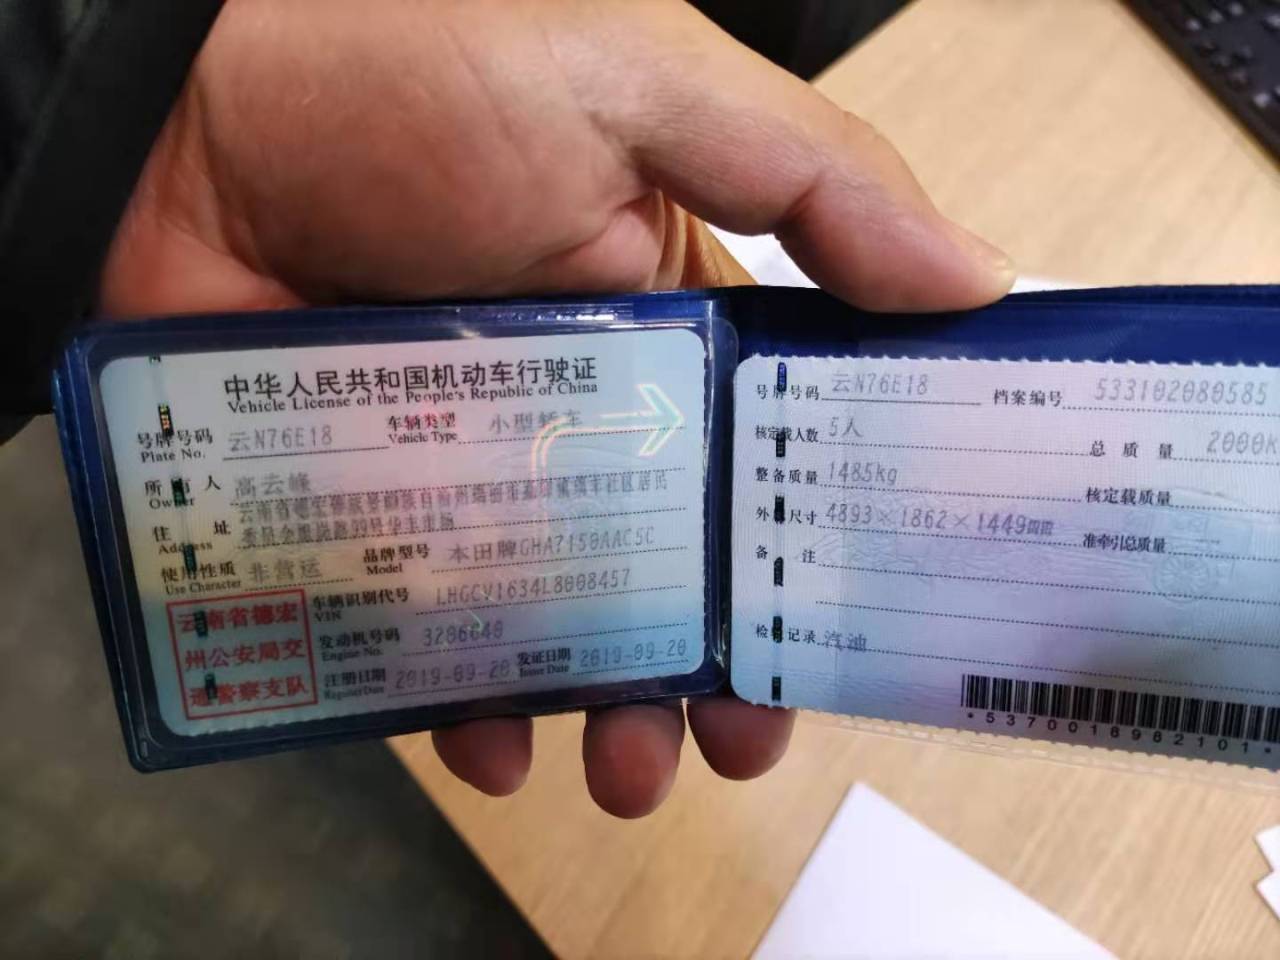 中华人民共和国机动车行驶证
Vehicle License of the People's Republic of China
号牌号码 云N76E18 车辆类型 小型轿车
Plate No. Vehicle Type
所有人 高云峰
Owner
云南省德宏傣族景颇族自治州瑞丽市 社区居民
住址 委员会 99号华丰市场
Address
使用性质 非营运 品牌型号 本田牌GHA7150AAC5C
Use Character Model
云南省德宏
州公安局交
通警察支队
车辆识别代号 LHGCV1634L8008457
VIN
发动机号码 3206640
Engine No.
注册日期 2019-09-20 发证日期 2019-09-20
Register Date Issue Date
号牌号码 云N76E18 档案编号 533102080585
核定载人数 5人 总质量 2000K
整备质量 1485kg 核定载质量
外廓尺寸 4893×1862×1449 准牵引总质量
备注
检验记录 汽油
*5370018982101*